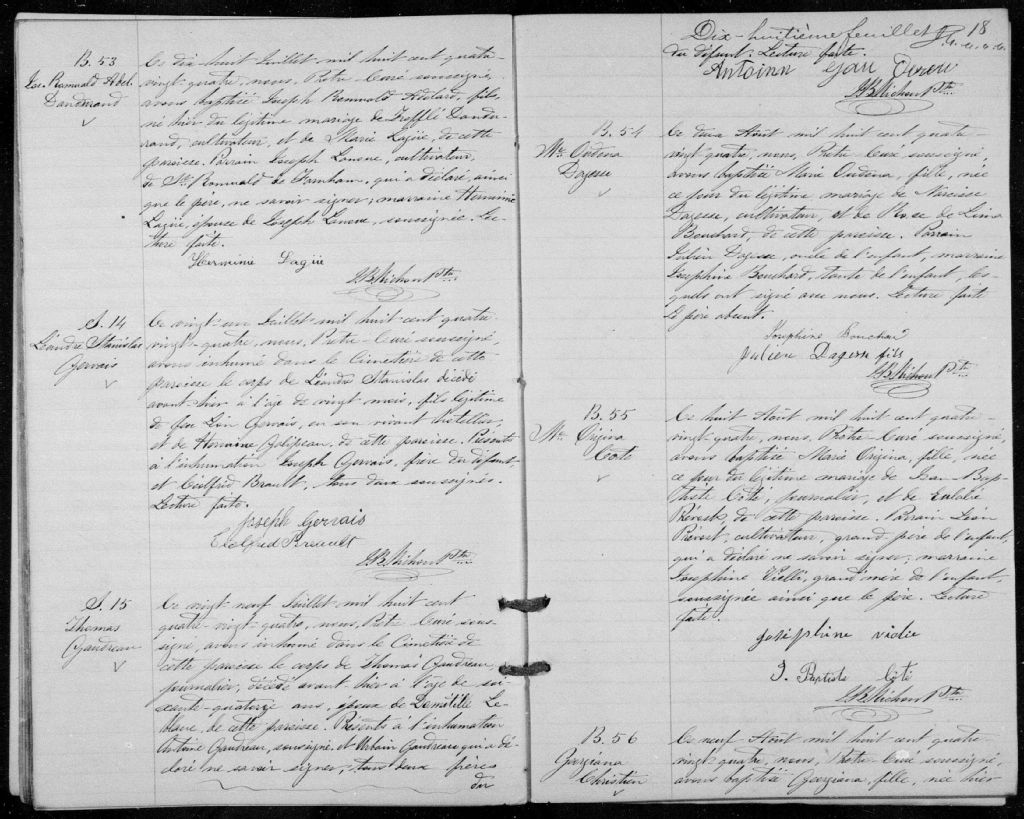 B. 53
Jos. Romuald Adel.
Dandurand
Ce dix-huit Juillet mil huit cent quatre-
vingt-quatre, nous, Prêtre Curé soussigné,
avons baptisé Joseph Romuald Adélard, fils,
né hier du légitime mariage de Trefflé Dandu-
rand, cultivateur, et de Marie Lagüe, de cette
paroisse. Parrain Joseph Lanoue, cultivateur,
de St. Romuald de Farnham, qui a déclaré, ainsi
que le père, ne savoir signer; marraine Hermine
Lagüe, épouse de Joseph Lanoue, soussignée. Lec-
ture faite.
Hermine Lagüe
J.B. Michon Ptre
S. 14
Léandre Stanislas
Gervais
Ce vingt-un Juillet mil huit cent quatre-
vingt-quatre, nous, Prêtre Curé soussigné,
avons inhumé dans le Cimetière de cette
paroisse le corps de Léandre Stanislas décédé
avant-hier à l'âge de vingt mois, fils légitime
de feu Léon Gervais, en son vivant hôtellier,
et de Hermine Galipeau, de cette paroisse. Présents
à l'inhumation Joseph Gervais, frère du défunt,
et Brault, tous deux soussignés.
Lecture faite.
Joseph Gervais
Brault
J.B. Michon Ptre
S. 15
Thomas
Gaudreau
Ce vingt-neuf Juillet mil huit cent
quatre-vingt-quatre, nous, Prêtre Curé sous-
signé, avons inhumé dans le Cimetière de
cette paroisse le corps de Thomas Gaudreau,
journalier, décédé avant-hier à l'âge de soi-
xante-quatorze ans, époux de Domitille Le-
blanc, de cette paroisse. Présents à l'inhumation
Antoine Gaudreau, soussigné, et Urbain Gaudreau qui a dé-
claré ne savoir signer, tous deux frères
du
Dix-huitième feuillet 18
du défunt. Lecture faite.
Antoinn
J.B. Michon Ptre
B. 54
Mie Oudena
Dagesse
Ce deux Août mil huit cent quatre-
vingt-quatre, nous, Prêtre Curé soussigné,
avons baptisé Marie Oudena, fille, née
ce jour du légitime mariage de Narcisse
Dagesse, cultivateur, et de Rose de Lima
Bouchard, de cette paroisse. Parrain
Julien Dagesse, oncle de l'enfant, marraine
Josephine Bouchard, tante de l'enfant, les-
quels ont signé avec nous. Lecture faite
Le père absent.
Josephine Bouchard
Julien Dagesse fils
J.B. Michon Ptre
B. 55
Mie
Coté
Ce huit Août mil huit cent quatre-
vingt-quatre, nous, Prêtre Curé soussigné,
avons baptisé Marie fille, née
ce jour du légitime mariage de Jean Bap-
tiste Côté, journalier, et de Eulalie
Prévost, de cette paroisse. Parrain Léon
Prévost, cultivateur, grand-père de l'enfant,
qui a déclaré ne savoir signer; marraine
Josephine grand'mère de l'enfant,
soussignée ainsi que le père. Lecture
faite.
Josephine
J. Baptiste Côté
J.B. Michon Ptre
B. 56
Georgiana
Christien
Ce neuf Août mil huit cent quatre-
vingt-quatre, nous, Prêtre Curé soussigné,
avons baptisé Georgiana, fille, née hier